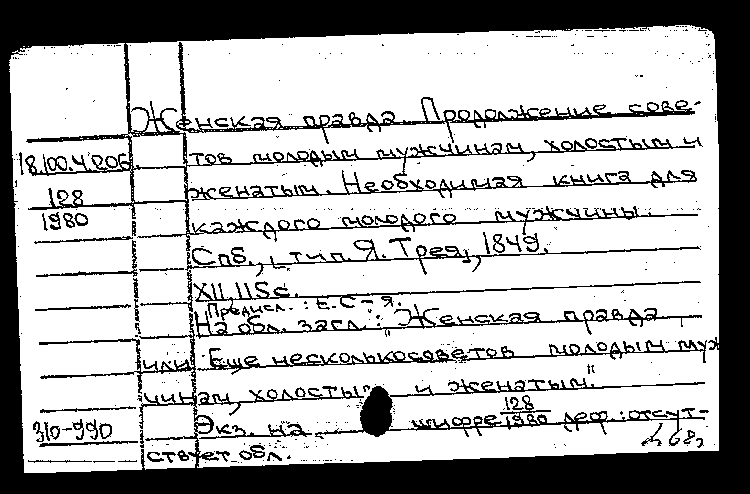 Женская правда. Продолжение сове-
18.100.4.206 тов молодым мужчинам, холостым и
128 женатым. Необходимая книга для
1980 каждого молодого мужчины.
Спб., [тип. Я. Трея], 1849.
XII, 115 с.
Предисл.: Е. С-я.
На обл. загл.: "Женская правда
или Еще несколько советов молодым муж
чинам, холостым и женатым."
Экз. на шифре 128/1980 деф.: отсут-
310-990
ствует обл.